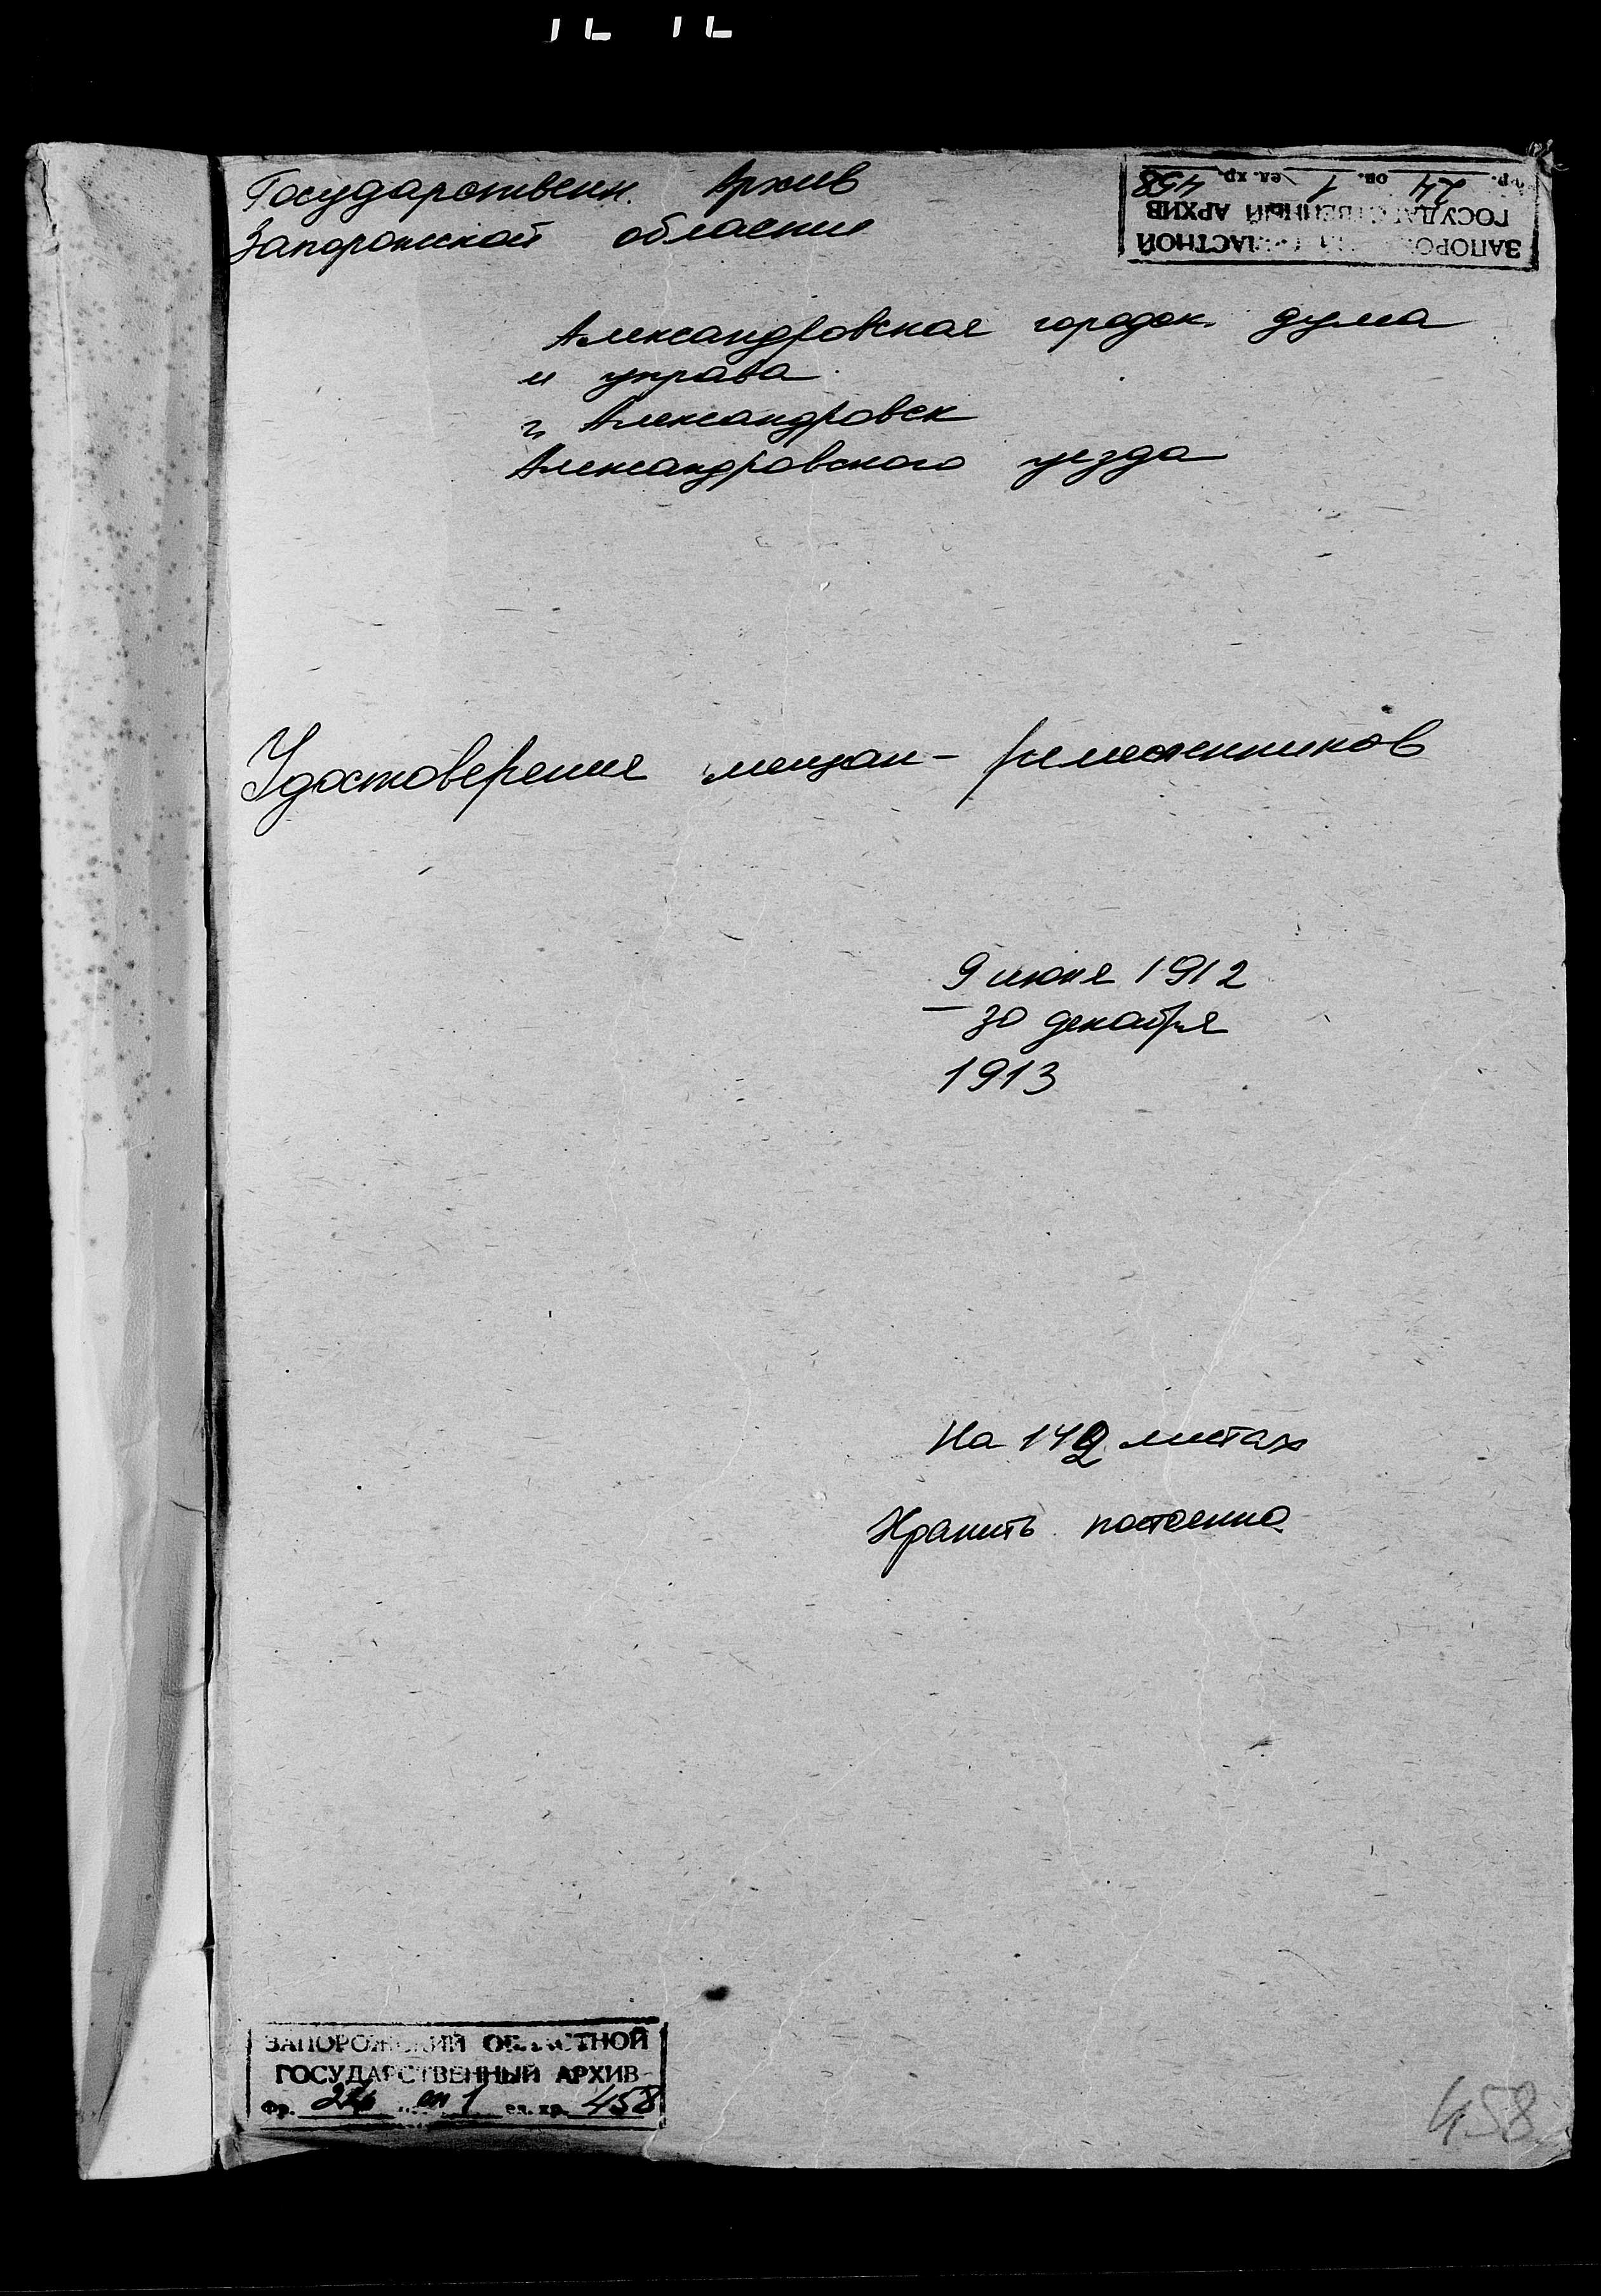 Государственн. Архив
Запорожской области
фр. 24 оп. 1 ед. хр. 458
ГОСУДАРСТВЕННЫЙ АРХИВ
ЗАПОРОЖСКИЙ ОБЛАСТНОЙ
Александровская городск. дума
и управа
г. Александровск
Александровского уезда
Удостоверения мещан - ремесленников
9 июня 1912
— 30 декабря
1913
На 142 листах
Хранить постоянно
ЗАПОРОЖСКИЙ ОБЛАСТНОЙ
ГОСУДАРСТВЕННЫЙ АРХИВ
Фр. 24 оп 1 ед. хр. 458
458